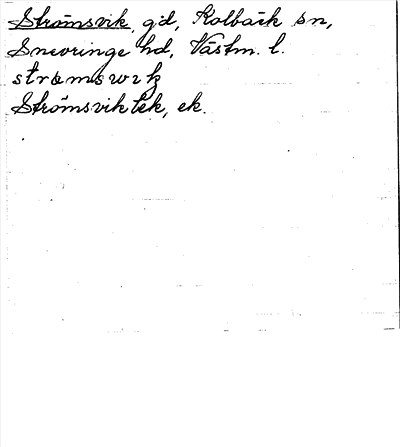 Strömsvik, gd, Kolbäck sn,
Snevringe hd, Västm. l.
Strömsvik tek, ek.